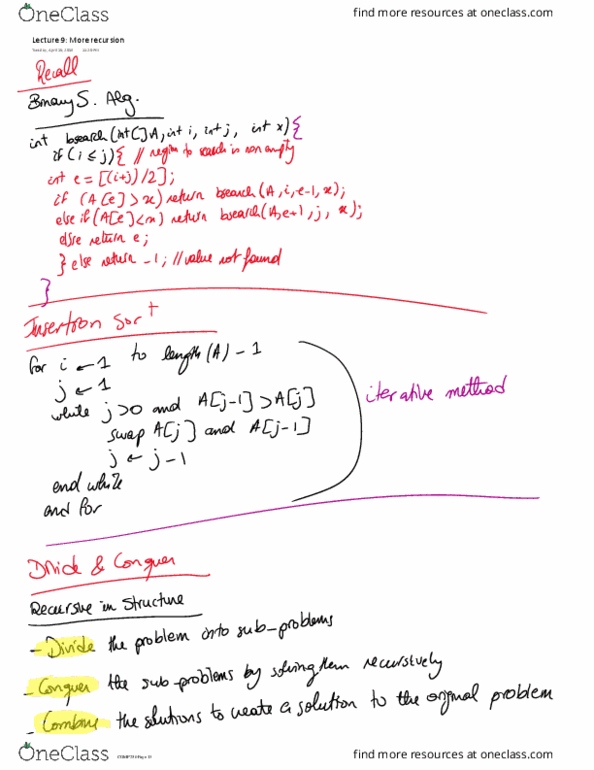 OneClass
find more resources at oneclass.com
Lecture 9: More recursion
Recall
Binary S. Alg.
int bsearch(int[]A, int i, int j, int x){
if (i ≤ j){ // region to search is non empty
int e = [(i+j)/2];
if (A[e] > x) return bsearch(A, i, e-1, x);
else if (A[e] < x) return bsearch(A, e+1, j, x);
else return e;
} else return -1; // value not found
}
Insertion Sort
for i ← 1 to length(A) - 1
j ← 1
while j > 0 and A[j-1] > A[j]
swap A[j] and A[j-1]
j ← j - 1
end while
end for
iterative method
Divide & Conquer
Recursive in Structure
- Divide the problem into sub-problems
- Conquer the sub-problems by solving them recursively
- Combine the solutions to create a solution to the original problem
OneClass
find more resources at oneclass.com